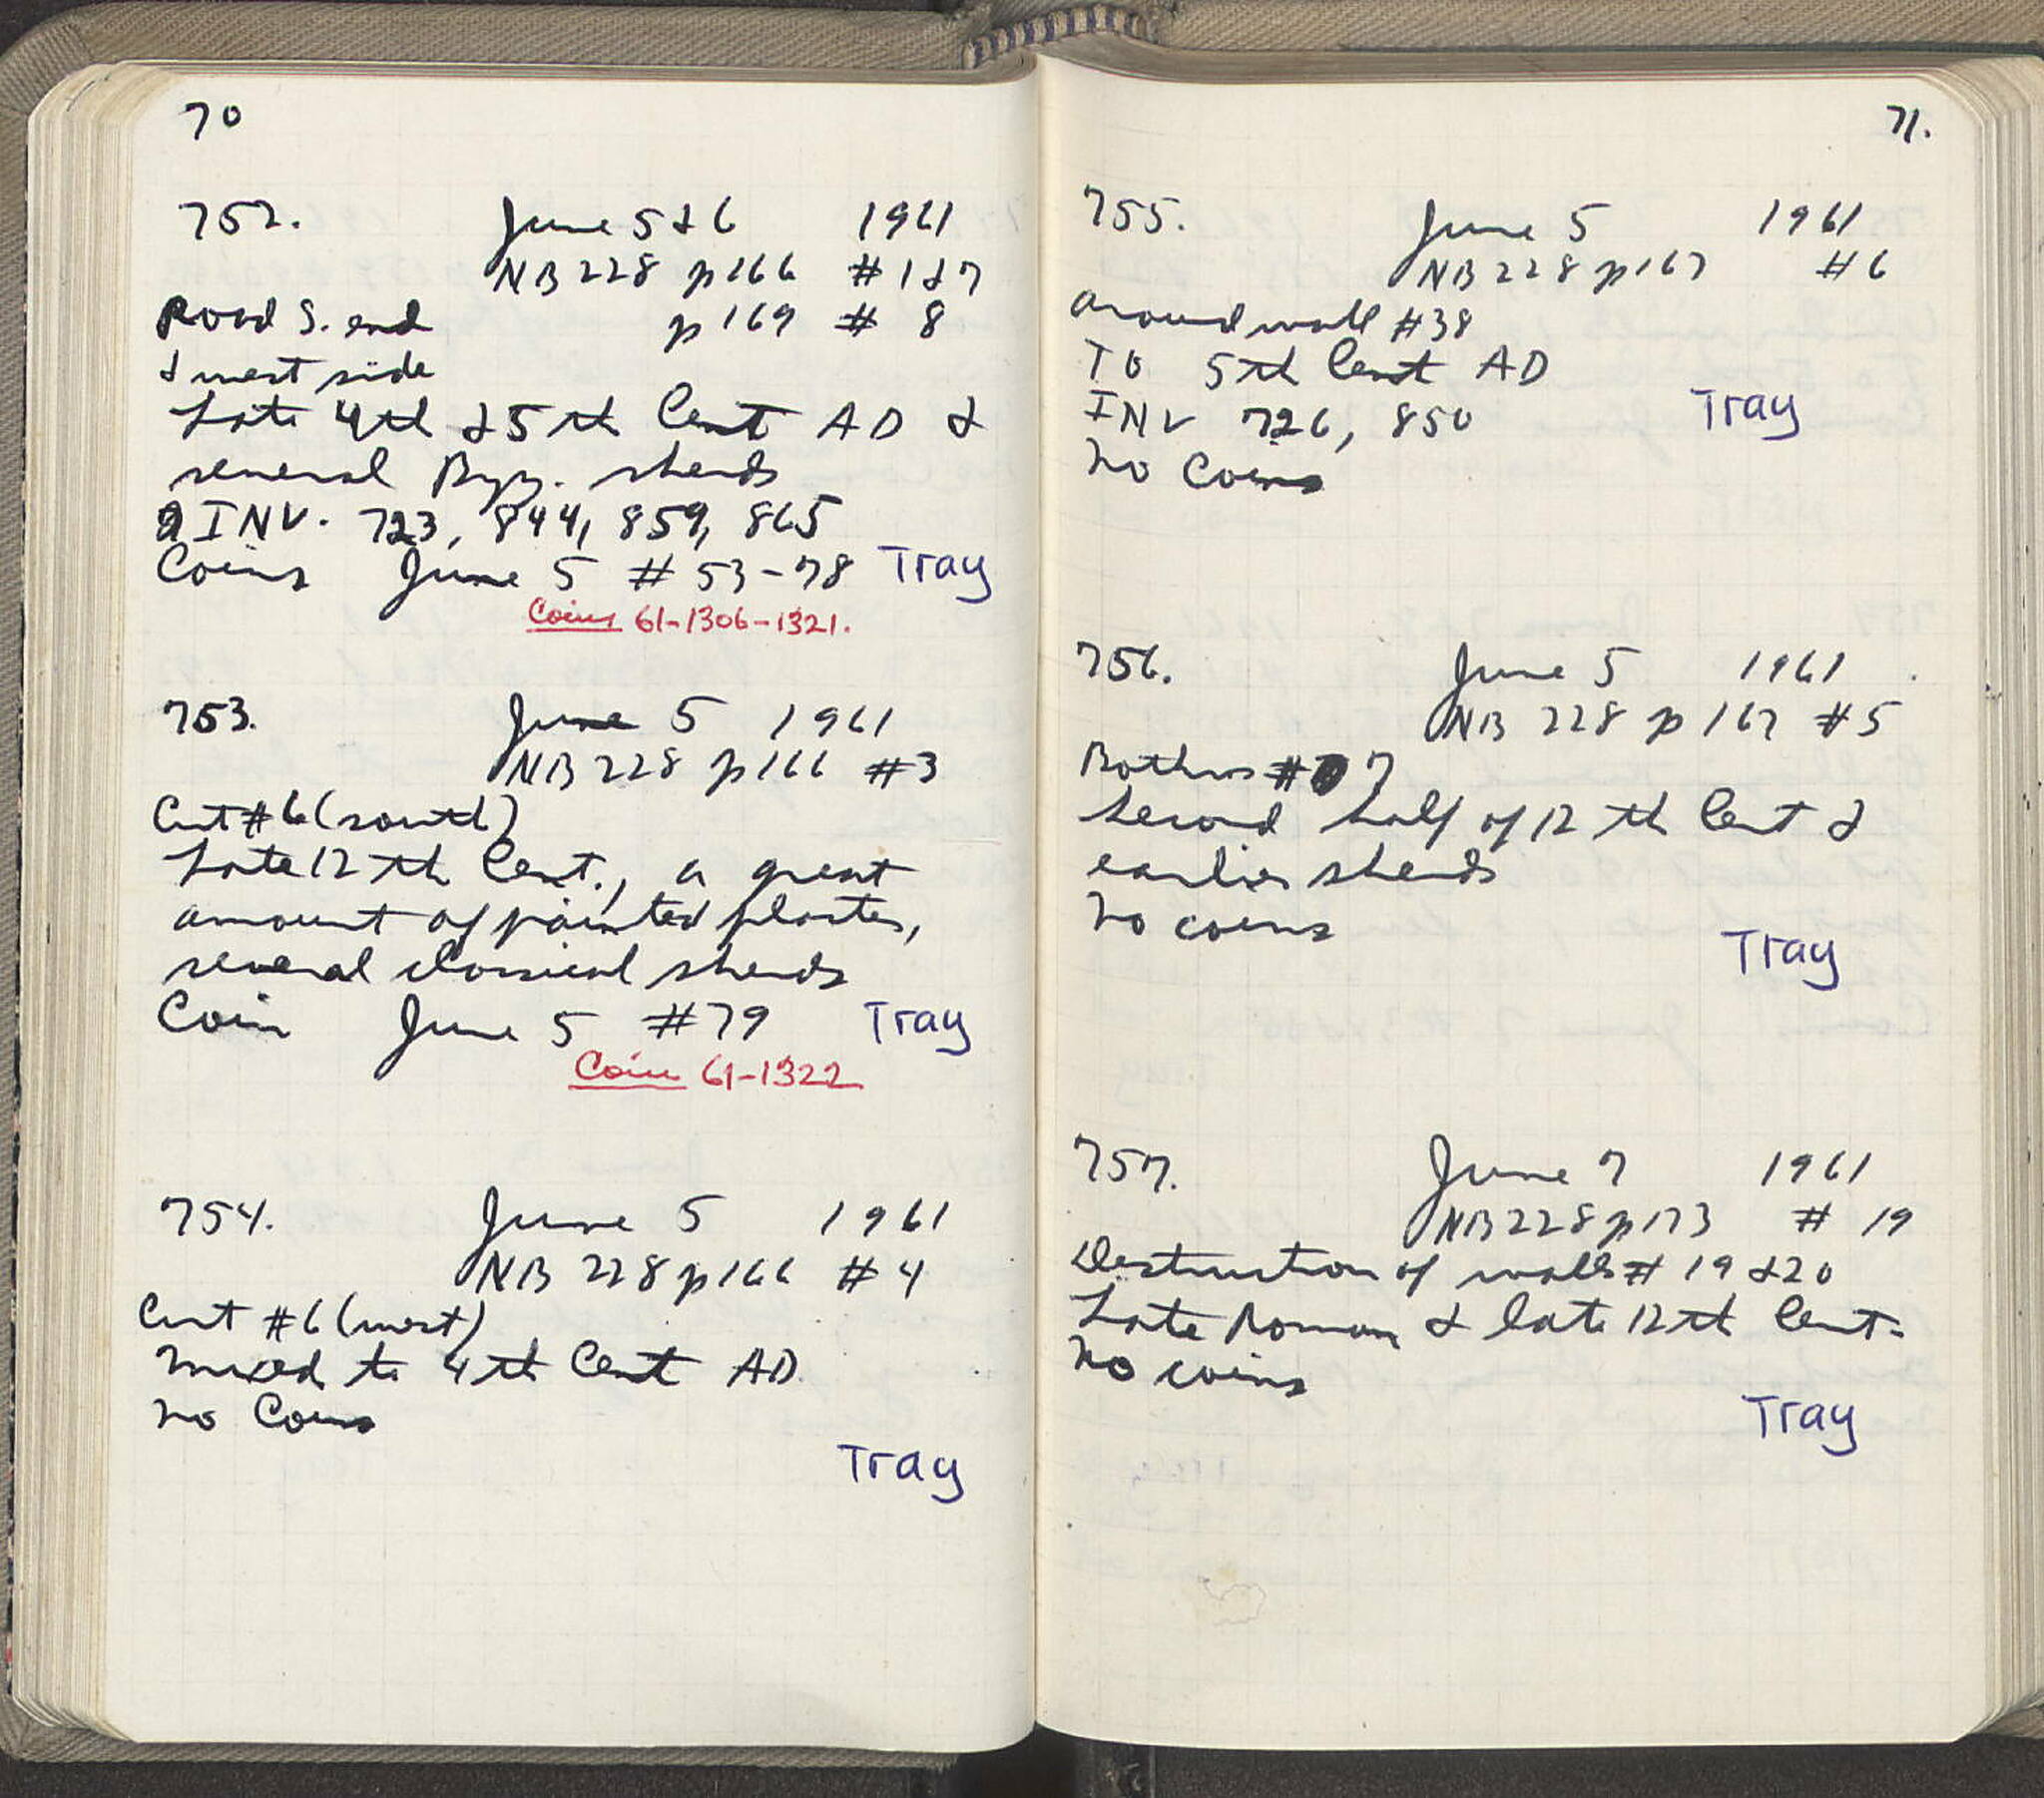 70
752. June 5 & 6 1961
NB 228 p166 #1&7
Road S. end p169 # 8
& west side
Late 4th & 5th Cent AD &
several Byz. sherds
INV. 723, 844, 859, 865
Coins June 5 #53-78 Tray
Coins 61-1306-1321.
753. June 5 1961
NB 228 p166 #3
Cut #6 (south)
Late 12th Cent., a great
amount of painted plaster,
several classical sherds
Coin June 5 #79 Tray
Coin 61-1322
754. June 5 1961
NB 228 p166 #4
Cut #6 (west)
mixed to 4th Cent AD
no Coins
Tray
71.
755. June 5 1961
NB 228 p167 #6
around wall #38
To 5th Cent AD
INV 726, 850 Tray
no Coins
756. June 5 1961
NB 228 p167 #5
Bothros # 7
Second half of 12th Cent &
earlier sherds
no coins
Tray
757. June 7 1961
NB 228 p173 # 19
Destruction of walls # 19 & 20
Late Roman & late 12th Cent.
no coins
Tray